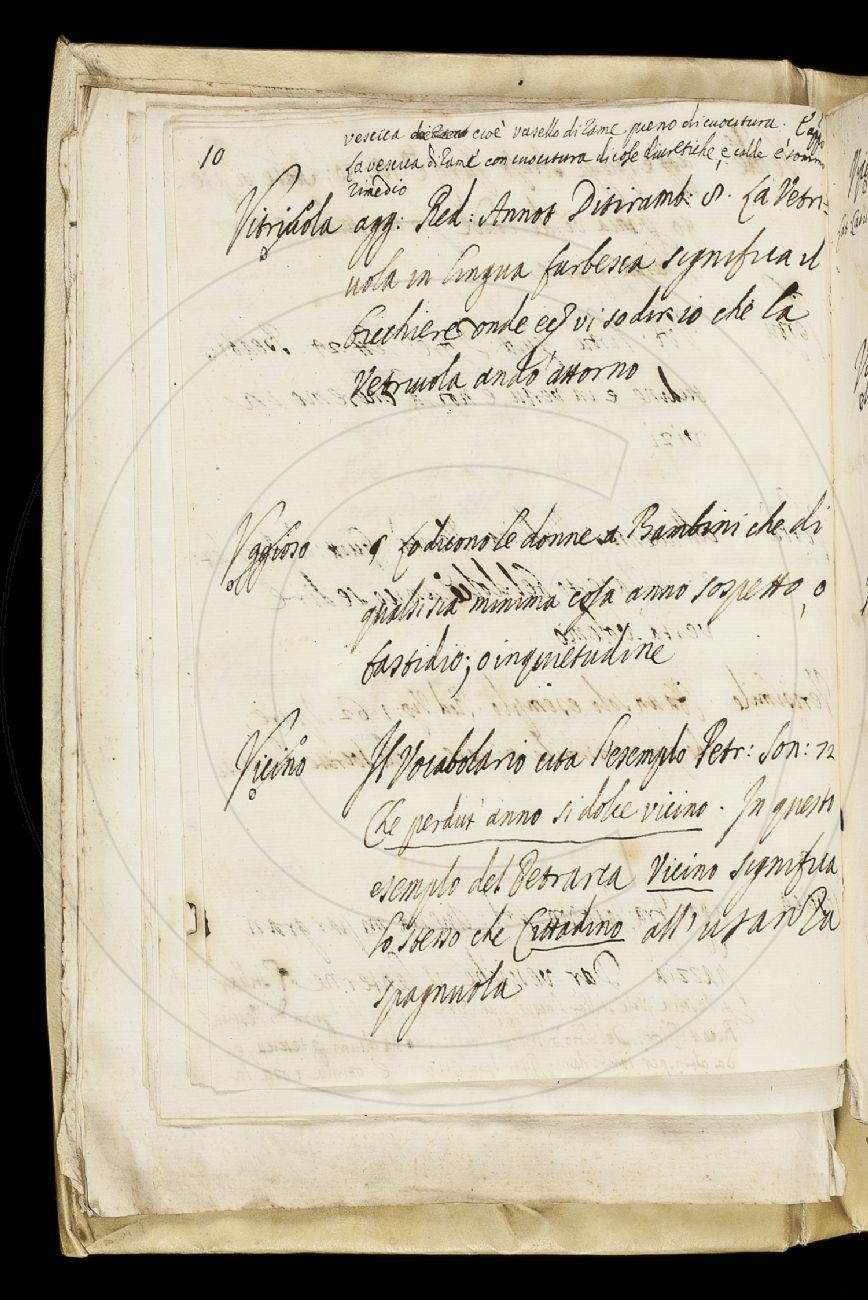 10
vescica cioè vasello di rame pieno di cuocitura.
La vescica di rame con cuocitura di cose diuretiche, e calde è sommo
rimedio
Vitriuola agg: Red: Annot Ditiramb: 8. La Vetri-
uola in lingua furbesca significa il
bicchiere onde vi so dir io che la
Vetriuola andò attorno
Uggioso Lo dicono le donne a Bambini che di
qualsisia minima cosa anno sospetto, o
fastidio; o inquietudine
Vicino Il Vocabolario cita l'esempio Petr: Son: 72
Che perdut' anno si dolce vicino. In questo
esemplo del Petrarca Vicino significa
lo stesso che Cittadino all'usanza
spagnuola